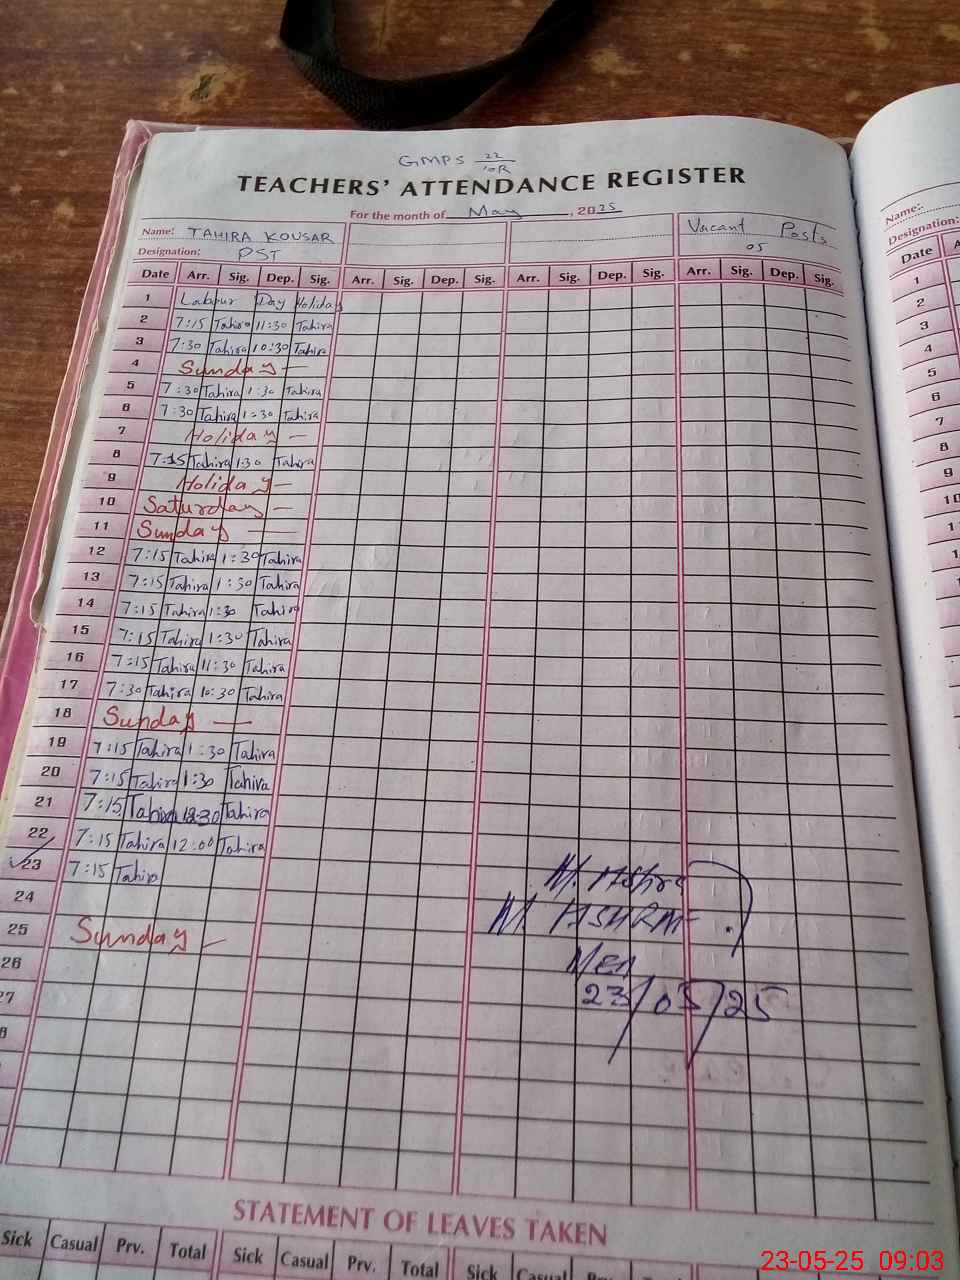 GMPS 22/10R
TEACHERS' ATTENDANCE REGISTER
For the month of May, 2025
Name: TAHIRA KOUSAR Vacant Posts
Designation: PST 05
Date Arr. Sig. Dep. Sig. Arr. Sig. Dep. Sig. Arr. Sig. Dep. Sig. Arr. Sig. Dep. Sig.
1 Labour Day Holiday
2 7:15 Tahira 11:30 Tahira
3 7:30 Tahira 10:30 Tahira
4 Sunday —
5 7:30 Tahira 1:30 Tahira
6 7:30 Tahira 1:30 Tahira
7 Holiday —
8 7:15 Tahira 1:30 Tahira
9 Holiday —
10 Saturday —
11 Sunday —
12 7:15 Tahira 1:30 Tahira
13 7:15 Tahira 1:30 Tahira
14 7:15 Tahira 1:30 Tahira
15 7:15 Tahira 1:30 Tahira
16 7:15 Tahira 11:30 Tahira
17 7:30 Tahira 10:30 Tahira
18 Sunday —
19 7:15 Tahira 1:30 Tahira
20 7:15 Tahira 1:30 Tahira
21 7:15 Tahira Tahira
22 7:15 Tahira 12:00 Tahira
23 7:15 Tahira
24
25 Sunday —
26
27
M. Ashra
M. ASHRAF
MEA
23/05/25
STATEMENT OF LEAVES TAKEN
Sick Casual Prv. Total Sick Casual Prv. Total Sick Casual
Name:
Designation:
Date
1
2
3
4
5
6
7
8
9
10
23-05-25 09:03